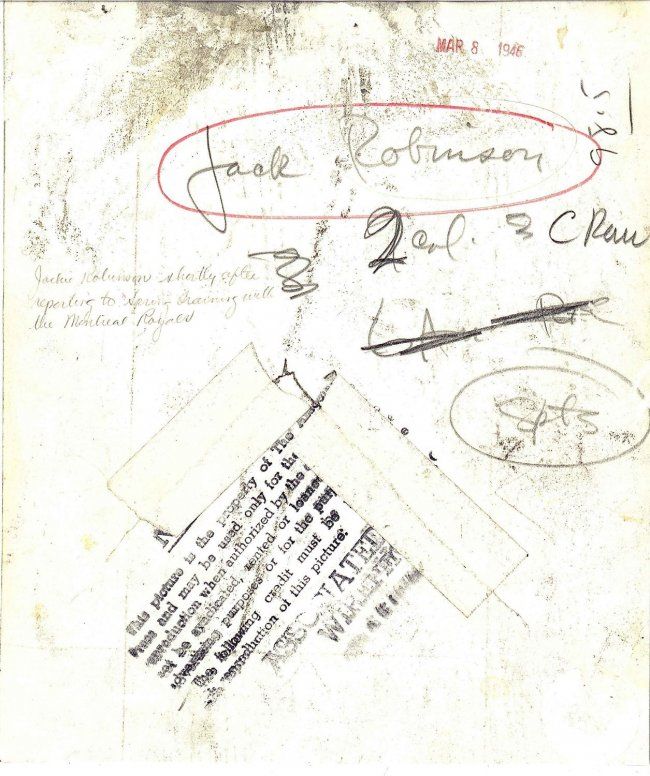 MAR 8 1946
98.5
Jack Robinson
2 col.
Jackie Robinson shortly after
reporting to spring training with
the Montreal Royals
Spts
This picture is the property of The
Press and may be used only for the
reproduction when authorized by the
not be syndicated, rented or loaned
advertising purposes or for the
The following credit must be
reproduction of this picture:
ASSOCIATED
WIREPHOTO